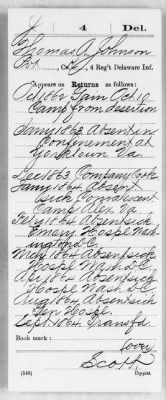 4 Del.
Thomas A. Johnson
Pvt., Co. , 4 Reg't Delaware Inf.
Appears on Returns as follows:
Oct 1862 Gain Oct 10
Camp from Desertion
Jany 1863 Absent in
Confinement at
Yorktown Va.
Dec 1863 Company Cook
Jany 1864 Absent
Sick Convalescent
Camp Alex Va
Feby 1864 Absent sick
Emery Hospl Wash
ington D.C.
Mch 1864 Absent sick
Hospl Wash D.C.
Apl 1864 Absent sick
Hospl Wash D.C.
Aug 1864 Absent sick
Gen Hospl.
Sept. 1864 Transfd
Book mark:
(over)
Scott
(546) Copyist.